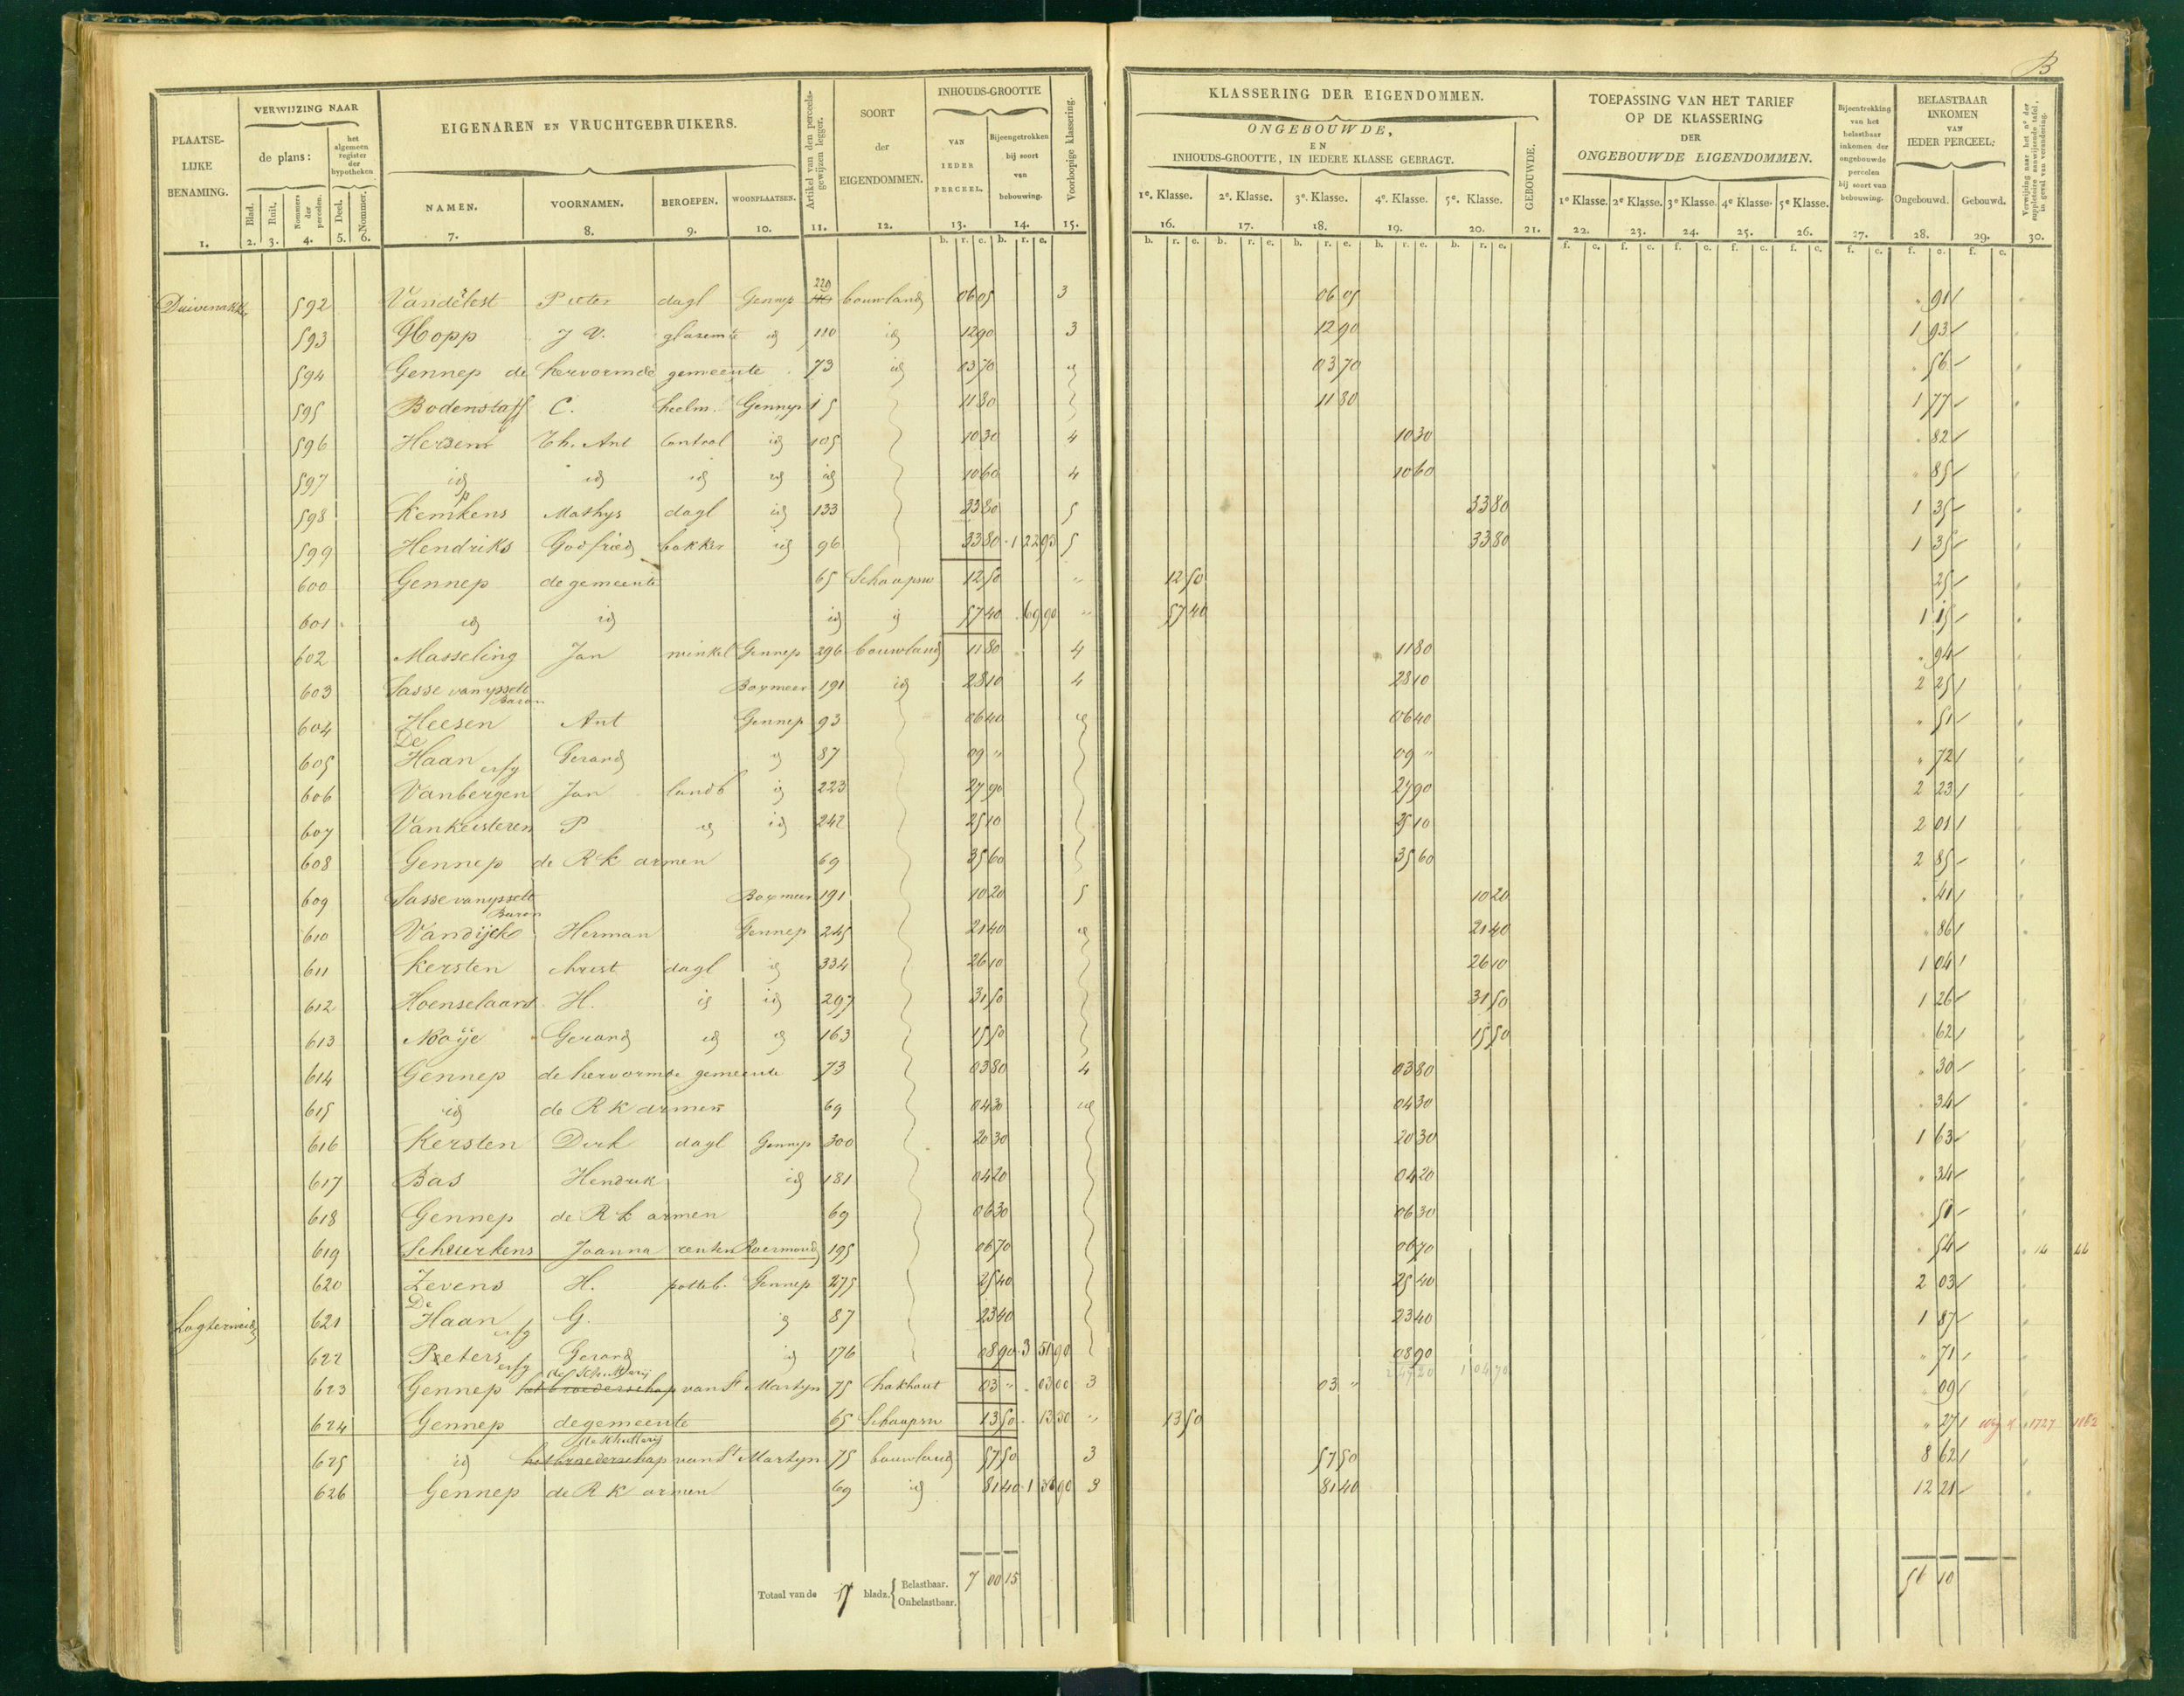 B
PLAATSE-
LIJKE
BENAMING.
VERWIJZING NAAR
de plans:
het algemeen register der hypotheken
Blad. Ruit. Nommers der perceelen. Deel. Nommer.
EIGENAREN EN VRUCHTGEBRUIKERS.
NAMEN. VOORNAMEN. BEROEPEN. WOONPLAATSEN.
Artikel van den perceelsgewijzen legger.
SOORT
der
EIGENDOMMEN.
INHOUDS-GROOTTE
VAN IEDER PERCEEL.
Bijeengetrokken bij soort van bebouwing.
Voorloopige klassering.
1. 2. 3. 4. 5. 6. 7. 8. 9. 10. 11. 12. 13. 14. 15.
b. r. e. b. r. e.
KLASSERING DER EIGENDOMMEN.
ONGEBOUWDE,
EN
INHOUDS-GROOTTE, IN IEDERE KLASSE GEBRAGT.
1e. Klasse. 2e. Klasse. 3e. Klasse. 4e. Klasse. 5e. Klasse.
GEBOUWDE.
TOEPASSING VAN HET TARIEF
OP DE KLASSERING
DER
ONGEBOUWDE EIGENDOMMEN.
1e Klasse. 2e Klasse. 3e Klasse. 4e Klasse. 5e Klasse.
Bijeentrekking van het belastbaar inkomen der ongebouwde percelen bij soort van bebouwing.
BELASTBAAR
INKOMEN
VAN
IEDER PERCEEL:
Ongebouwd. Gebouwd.
Verwijzing naar het no. der suppletoire aanwijzende tafel, in geval van verandering.
16. 17. 18. 19. 20. 21. 22. 23. 24. 25. 26. 27. 28. 29. 30.
592 Vanderlest Pieter dagl Gennep 220 bouwland 06 05 3 06 05 91
593 Hopp J V. id 110 id 12 90 3 12 90 1 93
594 Gennep de hervormde gemeente 73 id 03 70 id 03 70 56
595 Bodenstaff C. heelm. Gennep 15 11 80 11 80 1 77
596 Th. Ant Control id 105 10 30 4 10 30 82
597 id id id id id 10 60 4 10 60 85
598 Kempkens Mathys dagl id 133 33 80 5 33 80 1 35
599 Hendriks Godfried bakker id 96 33 80 1 22 95 5 33 80 1 35
600 Gennep de gemeente 65 Schaapsw 12 50 " 12 50 25
601 id id id id 57 40 69 90 " 57 40 1 15
602 Masseling Jan winkel Gennep 296 bouwland 11 80 4 11 80 94
603 Sasse van ysselt Baron Boxmeer 191 id 28 10 4 28 10 2 25
604 Heesen Ant Gennep 93 06 40 id 06 40 51
605 De Haan erfg Gerard id 87 09 " 09 " 72
606 Vanbergen Jan landb id 223 27 90 27 90 2 23
607 Vankeisteren P id id 242 25 10 25 10 2 01
608 Gennep de R k armen 69 35 60 35 60 2 85
609 Sasse van ysselt Baron Boxmeer 191 10 20 5 10 20 41
610 Vandijck Herman Gennep 245 21 40 id 21 40 86
611 Kersten christ dagl id 334 26 10 26 10 1 04
612 Hoenselaars H. id id 297 31 50 31 50 1 26
613 Nooÿe Gerard id id 163 15 50 15 50 62
614 Gennep de hervormde gemeente 73 03 80 4 03 80 30
615 id de R k armen 69 04 30 id 04 30 34
616 Kersten Derk dagl Gennep 300 20 30 20 30 1 63
617 Bas Hendrik id 181 04 20 04 20 34
618 Gennep de R k armen 69 06 30 06 30 51
619 Scheurkens Joanna renten Roermond 195 06 70 06 70 54 14 44
620 Zevens H. potteb. Gennep 275 25 40 25 40 2 03
621 De Haan erfg G. id 87 23 40 23 40 1 87
622 Peters erfg Gerard id 176 08 90 3 51 90 08 90 71
623 Gennep de Schutterij het broederschap van St Martyn 75 hakhout 03 " 03 00 3 03 " 09
624 Gennep de gemeente 65 Schaapsw 13 50 13 50 " 13 50 27 1727 1862
625 id de Schutterij het broederschap van St Martyn 75 bouwland 57 50 3 57 50 8 62
626 Gennep de R k armen 69 id 81 40 1 38 90 3 81 40 12 21
Totaal van de bladz. Belastbaar. 7 00 15 56 10
Onbelastbaar.